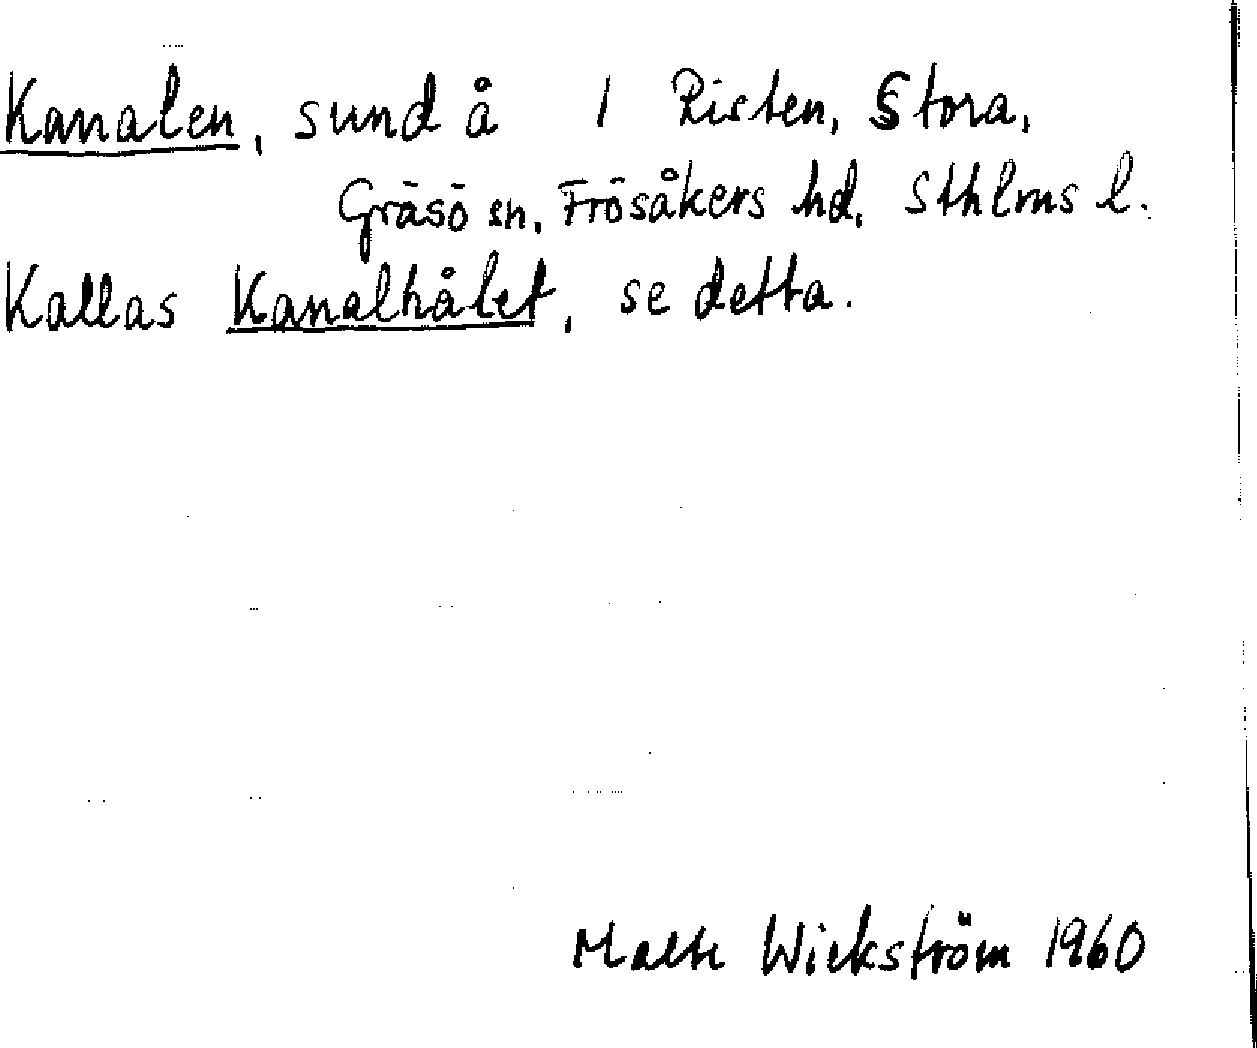 Kanalen, sund å 1 Risten, Stora,
Gräsö sn. Frösåkers hd. Sthlms l.
Kallas Kanalhålet, se detta.
Malte Wickström 1960